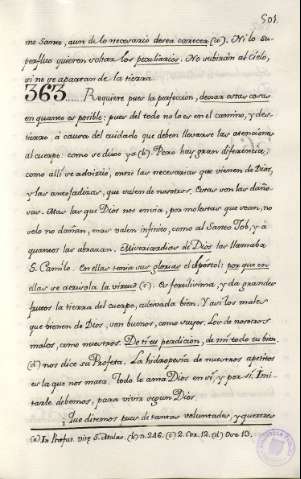 501.
no Santo, aun de lo necesario desea carecer (a). Ni lo su-
perfluo quieren soltar los peculiarios. No subirán al Cielo,
si no se apartan de la tierra.
363. Requiere pues la perfección, desear estas cosas
en quanto es posible: pues del todo no lo es en el camino, y des-
tierro, á causa del cuidado que deben llevarse las atenciones
al cuerpo: como se dixo ya (b). Pero hay gran diferencia;
como allí se advirtió, entre las necesarias que vienen de Dios,
y las que valen de nosotros. Estas son las daño-
sas. Mas las que Dios nos envia, por molestas que sean, no
solo no dañan, mas valen infinito, como al Santo Job, y á
quantos las abrazan. Misericordias de Dios las llamaba
S. Camilo. En ellas tenía sus glorias el Apóstol: porque en
ellas se la virtud (c). Es fertilísima, y da grandes
frutos la tierra del cuerpo, bien. Y así los males
que vienen de Dios, son buenos, como suyos. Los de nosotros
malos, como nuestros. De ti es perdición, de mí todo tu bien,
(d) nos dice su Profeta. La hidropesía de nuestros apetitos
es la que nos mata. Todo le ama Dios en sí, y por sí. Imi-
tarle debemos, para vivir segun Dios.
Que diremos pues de tantas voluntades, y quereres
(b) n. 246. (c) 2. Cor. 12. (d) Ose 13.